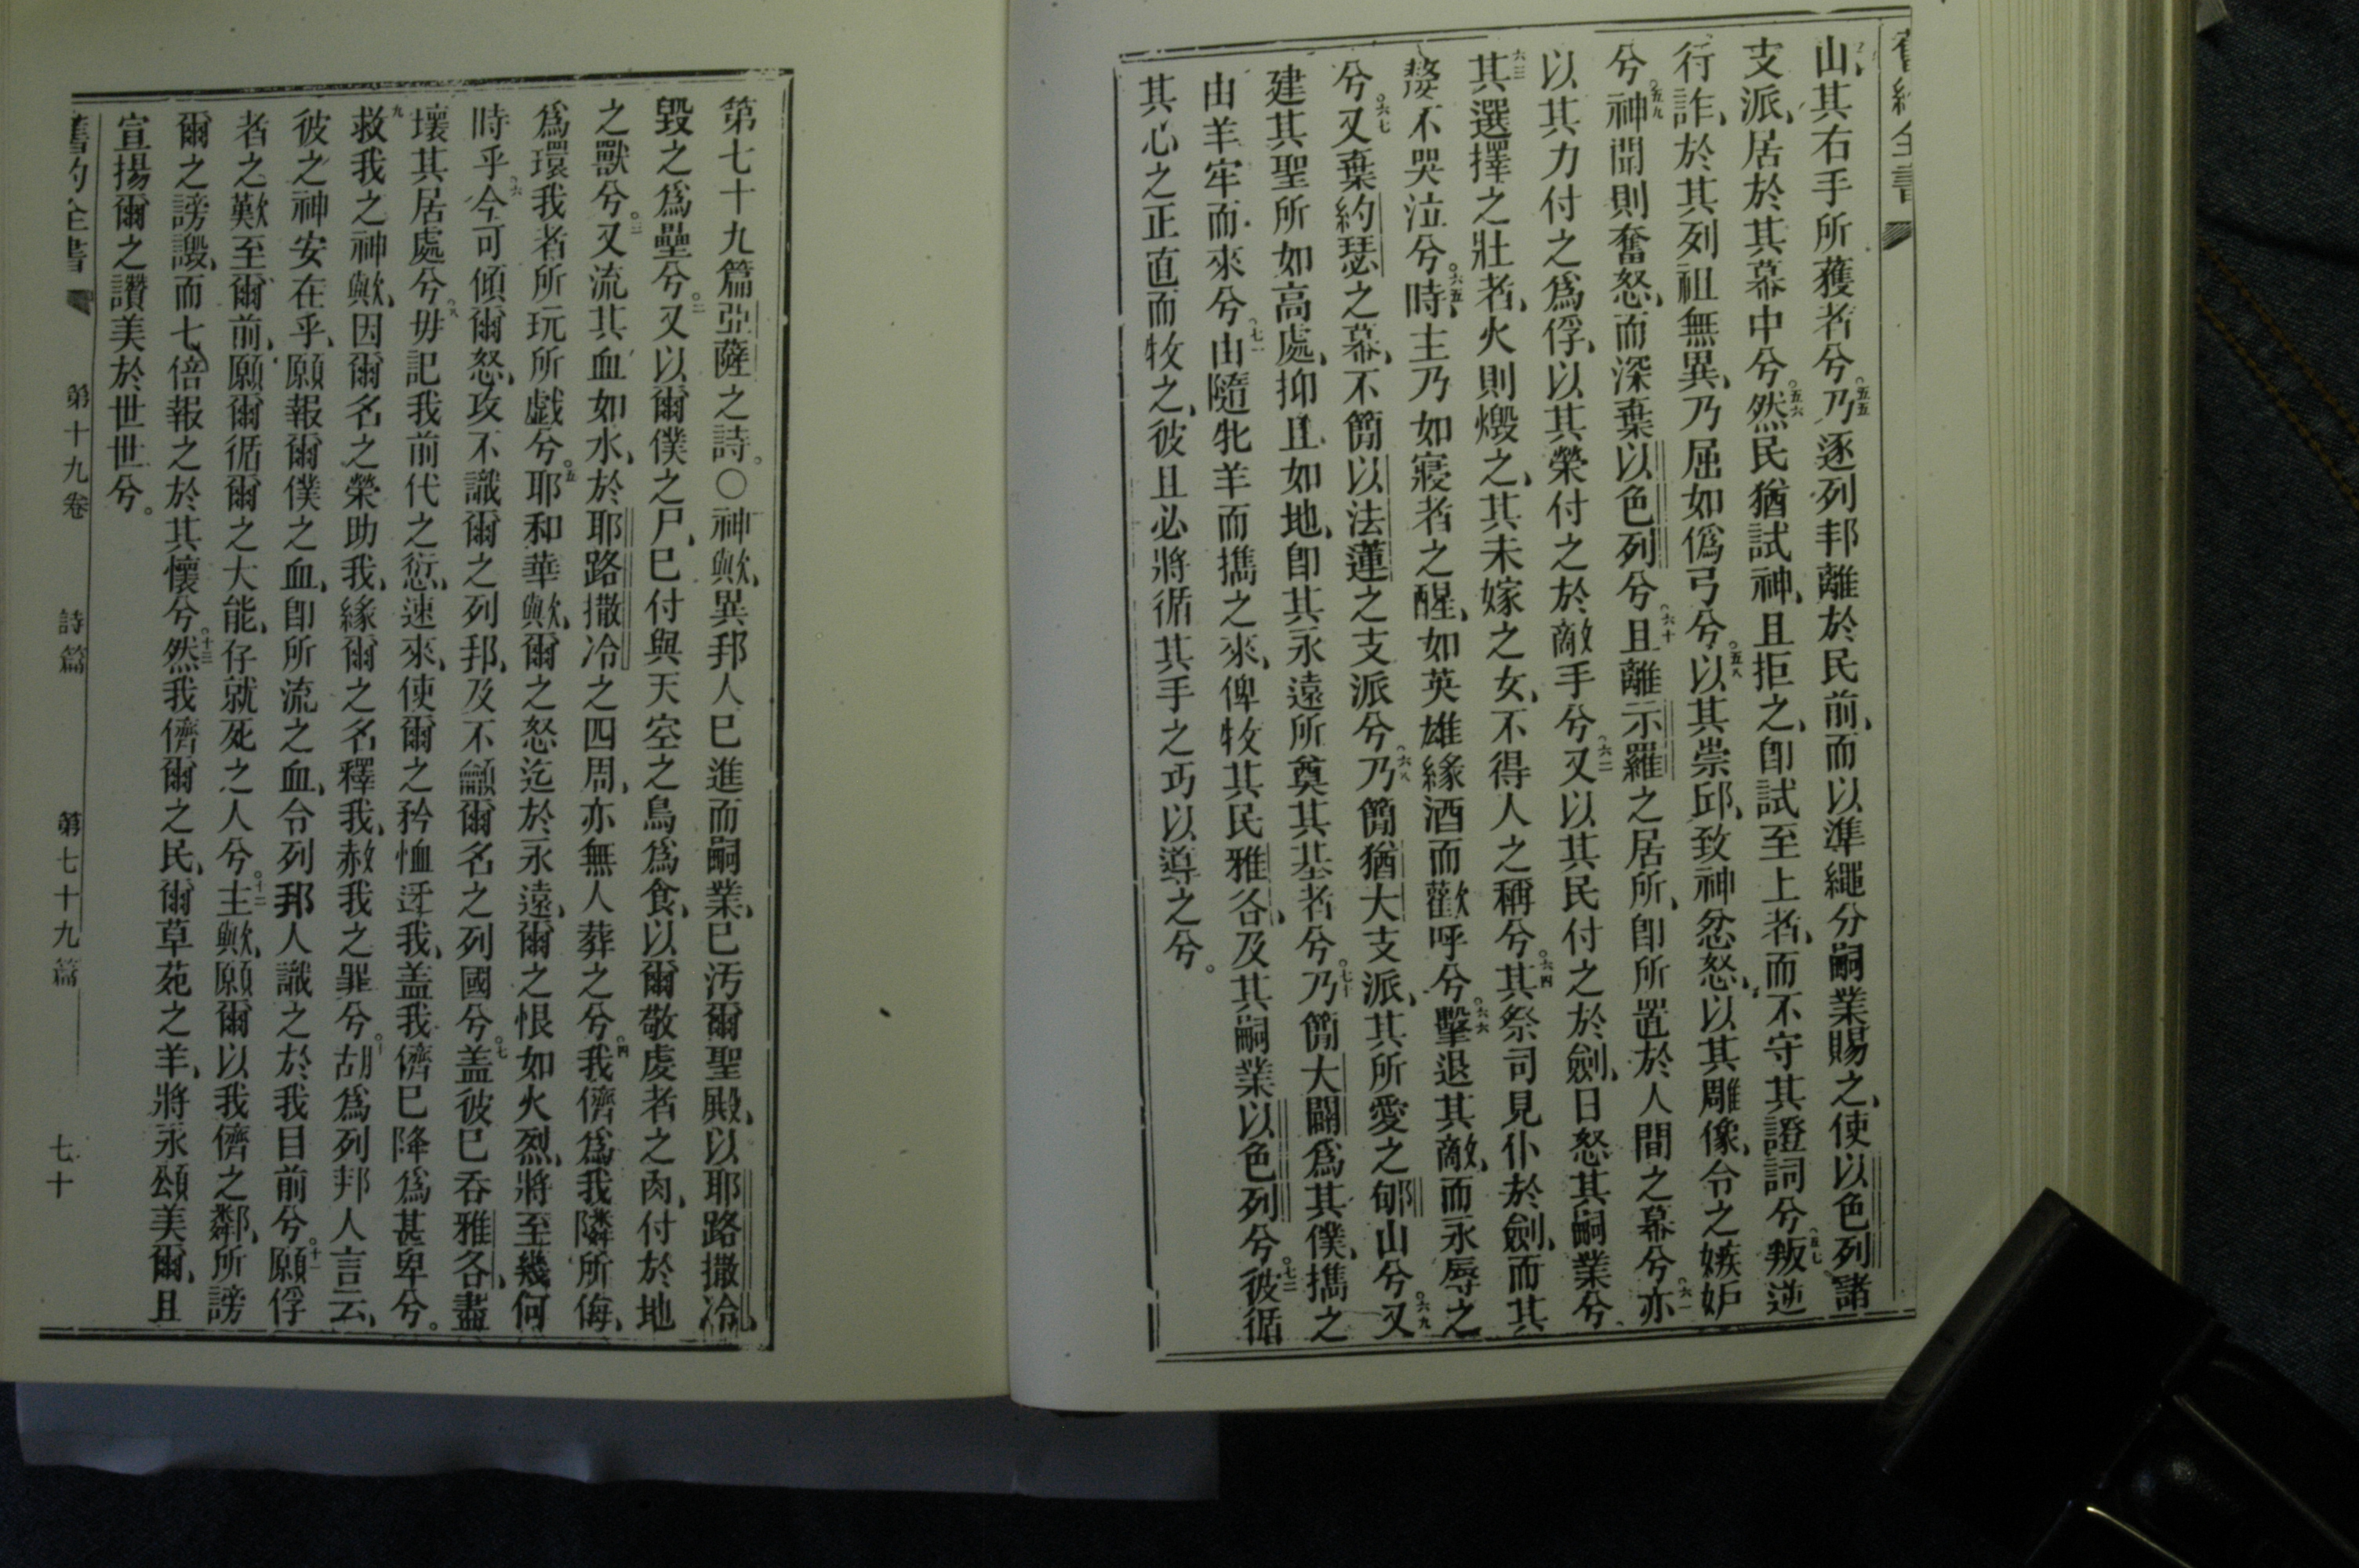 舊約全書
山、其右手所獲者兮。五五乃逐列邦離於民前、而以準繩分嗣業賜之、使以色列諸
支派、居於其幕中兮。五六然民猶試神、且拒之、卽試至上者、而不守其證詞兮。五七叛逆
行詐、於其列祖無異、乃屈如僞弓兮。五八以其崇邱、致神忿怒、以其雕像、令之嫉妒
兮。五九神聞則奮怒、而深棄以色列兮。六十且離示羅之居所、卽所置於人間之幕兮。六一亦
以其力付之爲俘、以其榮付之於敵手兮。六二又以其民付之於劍、因怒其嗣業兮。
六三其選擇之壯者、火則燬之、其未嫁之女、不得人之稱兮。六四其祭司見仆於劍、而其
嫠不哭泣兮。六五時、主乃如寢者之醒、如英雄緣酒而歡呼兮。六六擊退其敵、而永辱之
兮。六七又棄約瑟之幕、不簡以法蓮之支派兮。六八乃簡猶大支派、其所愛之郇山兮。六九又
建其聖所如高處、抑且如地、卽其永遠所奠其基者兮。七十乃簡大闢爲其僕、攜之
由羊牢而來兮。七一由隨牝羊而攜之來、俾牧其民雅各、及其嗣業以色列兮。七二彼循
其心之正直而牧之、彼且必將循其手之巧以導之兮。
第七十九篇亞薩之詩。○神歟、異邦人已進而嗣業、已汚爾聖殿、以耶路撒冷、
毀之爲壘兮。二又以爾僕之尸、已付與天空之鳥爲食、以爾敬虔者之肉、付於地
之獸兮。三又流其血如水、於耶路撒冷之四周、亦無人葬之兮。四我儕爲我隣所侮、
爲環我者所玩所戲兮。五耶和華歟、爾之怒迄於永遠、爾之恨如火烈、將至幾何
時乎。六今可傾爾怒、攻不識爾之列邦、及不籲爾名之列國兮。七盖彼已吞雅各、盡
壞其居處兮。八毋記我前代之愆、速來、使爾之矜恤迓我、盖我儕已降爲甚卑兮。
九救我之神歟、因爾名之榮助我、緣爾之名釋我、赦我之罪兮。十胡爲列邦人言云、
彼之神安在乎、願報爾僕之血、卽所流之血、令列邦人識之於我目前兮。十一願俘
者之歎至爾前、願爾循爾之大能、存就死之人兮。十二主歟、願爾以我儕之鄰、所謗
爾之謗讟、而七倍報之於其懷兮。十三然我儕爾之民、爾草苑之羊、將永頌美爾、且
宣揚爾之讚美於世世兮。
舊約全書 第十九卷 詩篇 第七十九篇 七十